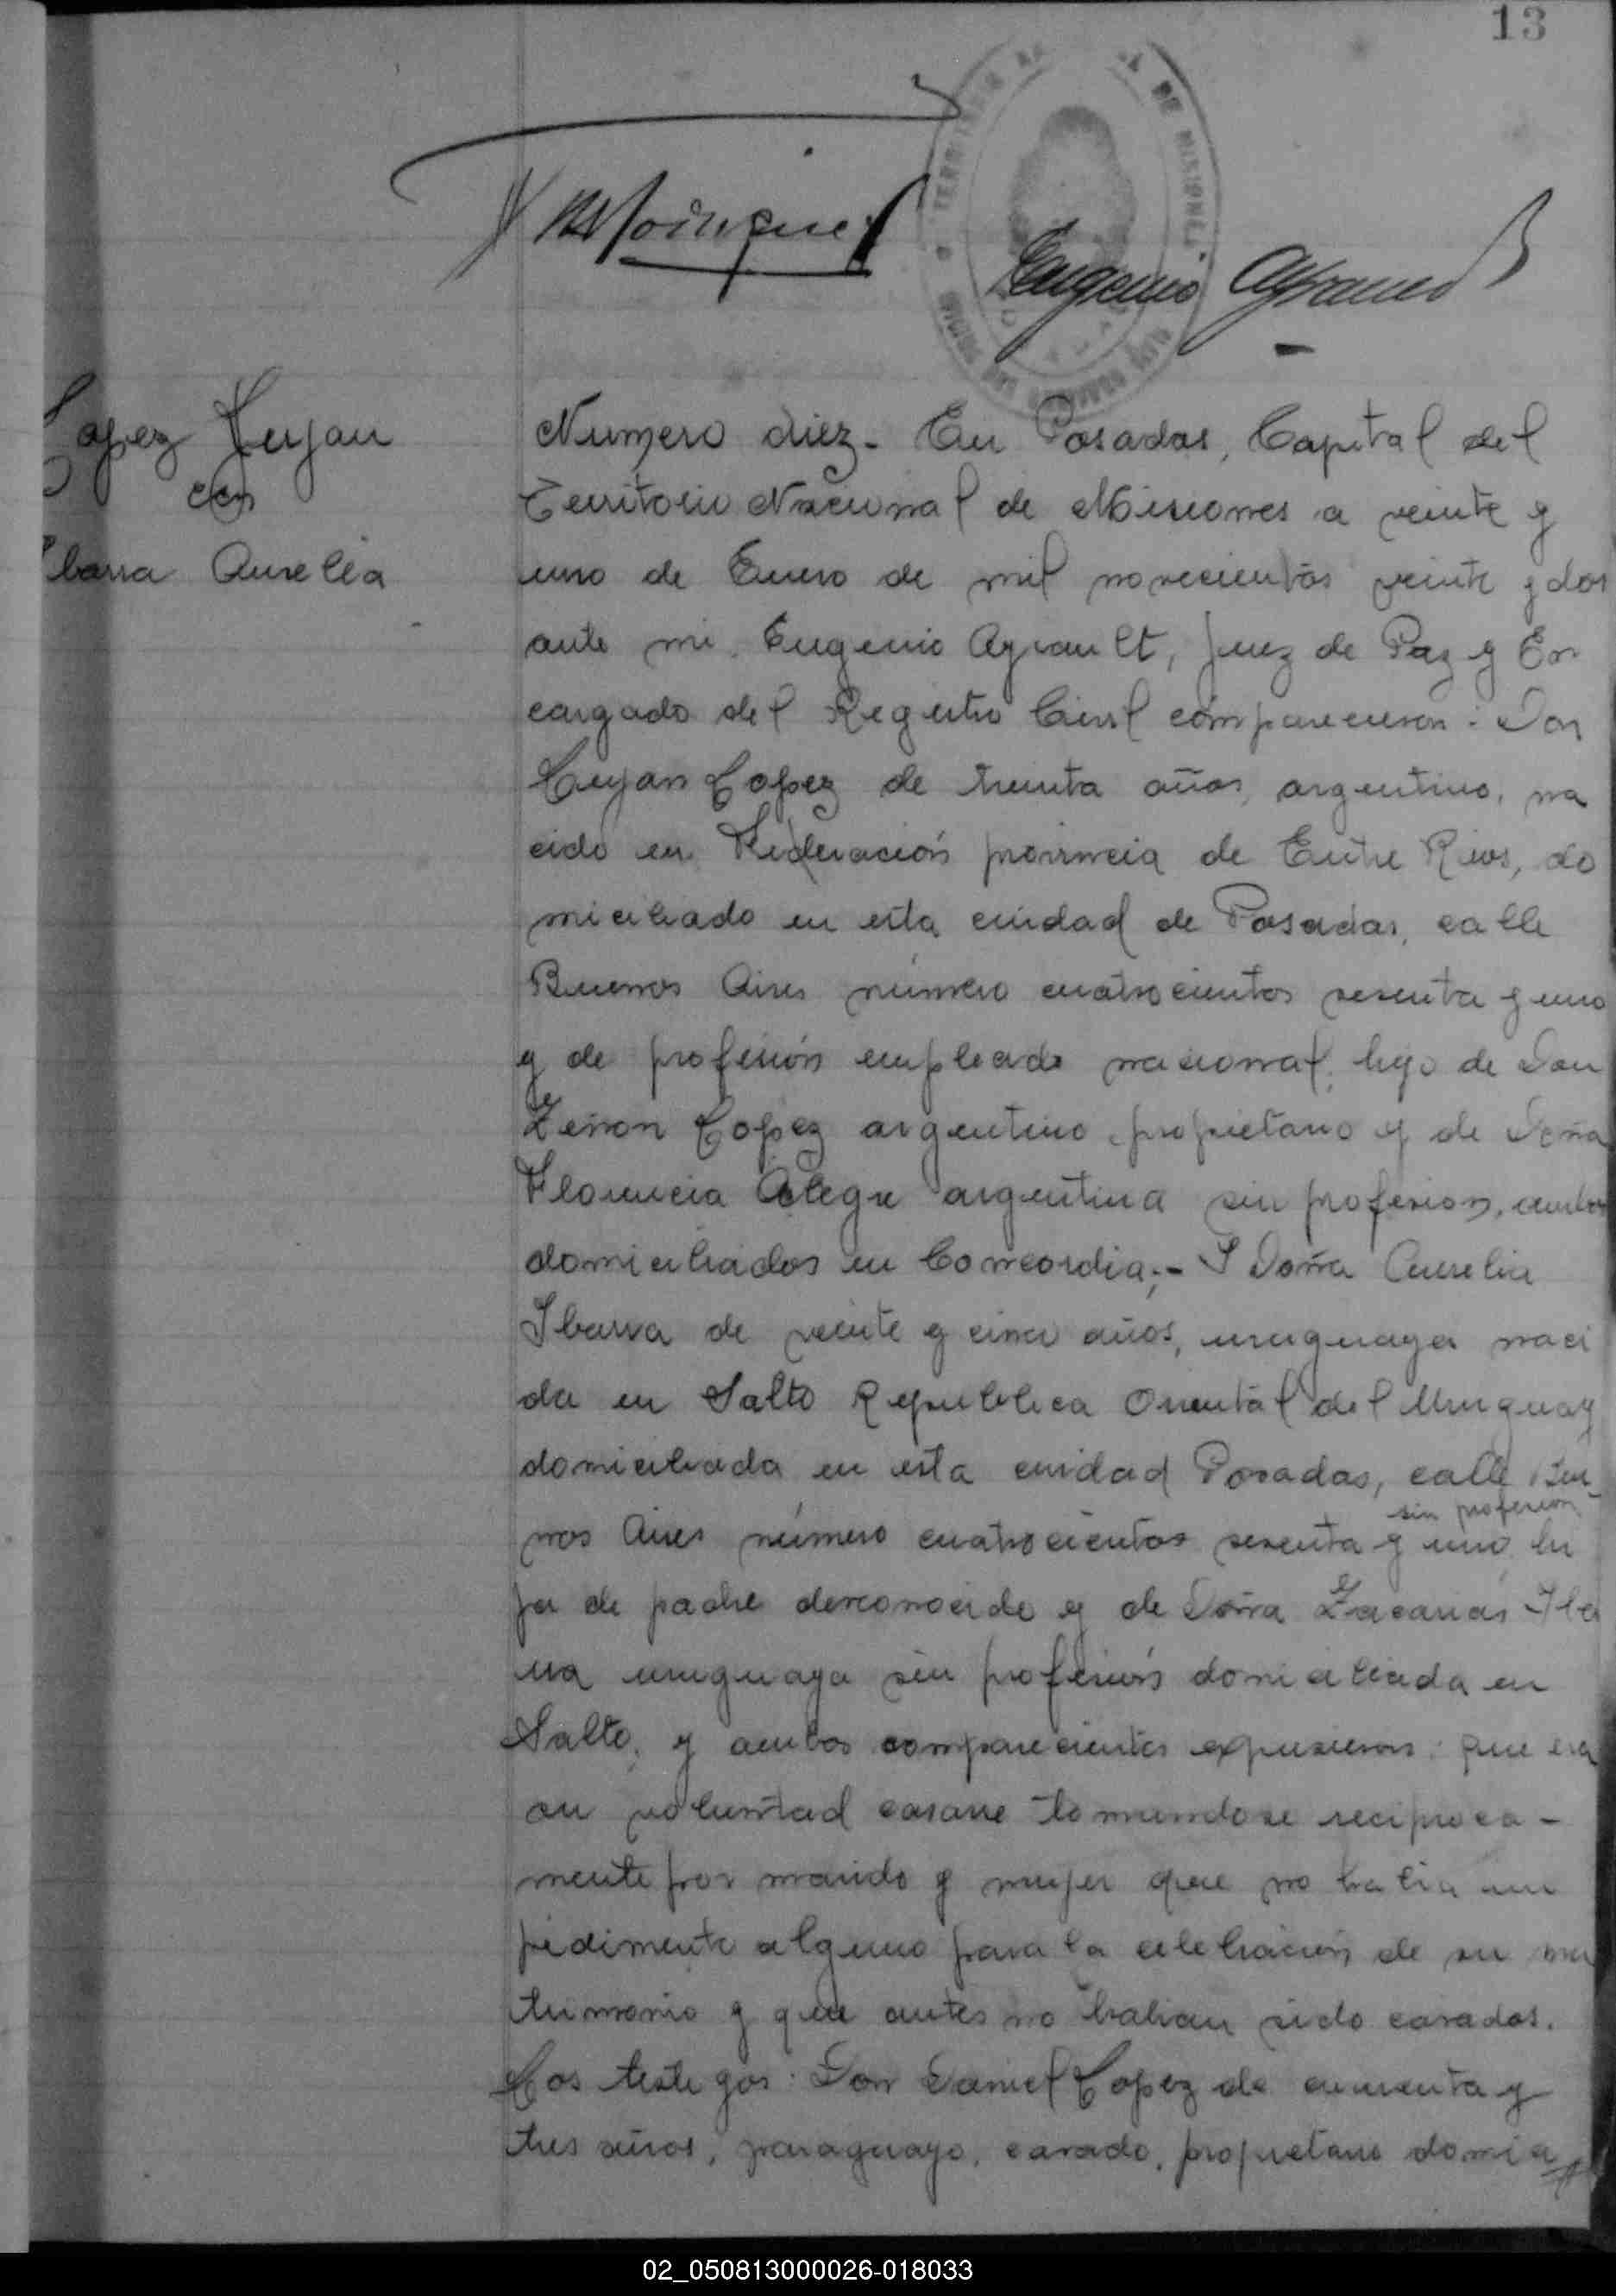 13
TERRITORIO NACIONAL DE MISIONES
Eugenio
Lopez Lujan
con
Ibarra Aurelia
Numero diez - En Posadas, Capital del
Territorio Nacional de Misiones a veinte y
uno de Enero de mil novecientos veinte y dos
ante mi, Eugenio Ayrault, Juez de Paz y En
cargado del Registro Civil comparecieron: Don
Lujan Lopez de treinta años, argentino, na
cido en Federación provincia de Entre Rios, do
miciliado en esta ciudad de Posadas, calle
Buenos Aires número cuatrocientos sesenta y uno
y de profesión empleado nacional, hijo de Don
Zenon Lopez argentino, propietario y de Doña
Florencia Alegre argentina sin profesion, ambos
domiciliados en Concordia;- Y Doña Aurelia
Ibarra de veinte y cinco años, uruguaya naci
da en Salto Republica Oriental del Uruguay
domiciliada en esta ciudad Posadas, calle Bue-
sin profesion
nos Aires número cuatrocientos sesenta y uno, hi
ja de padre desconocido y de Doña Zacarias Iba
rra uruguaya sin profesión domiciliada en
Salto, y ambos comparecientes expusieron: que era
su voluntad casarse tomandose reciproca-
mente por marido y mujer que no habia im
pedimento alguno para la celebración de su ma
trimonio y que antes no habian sido casados.
Los testigos: Don Daniel Lopez de cincuenta y
tres años, paraguayo, casado, propietario domici
02_050813000026-018033